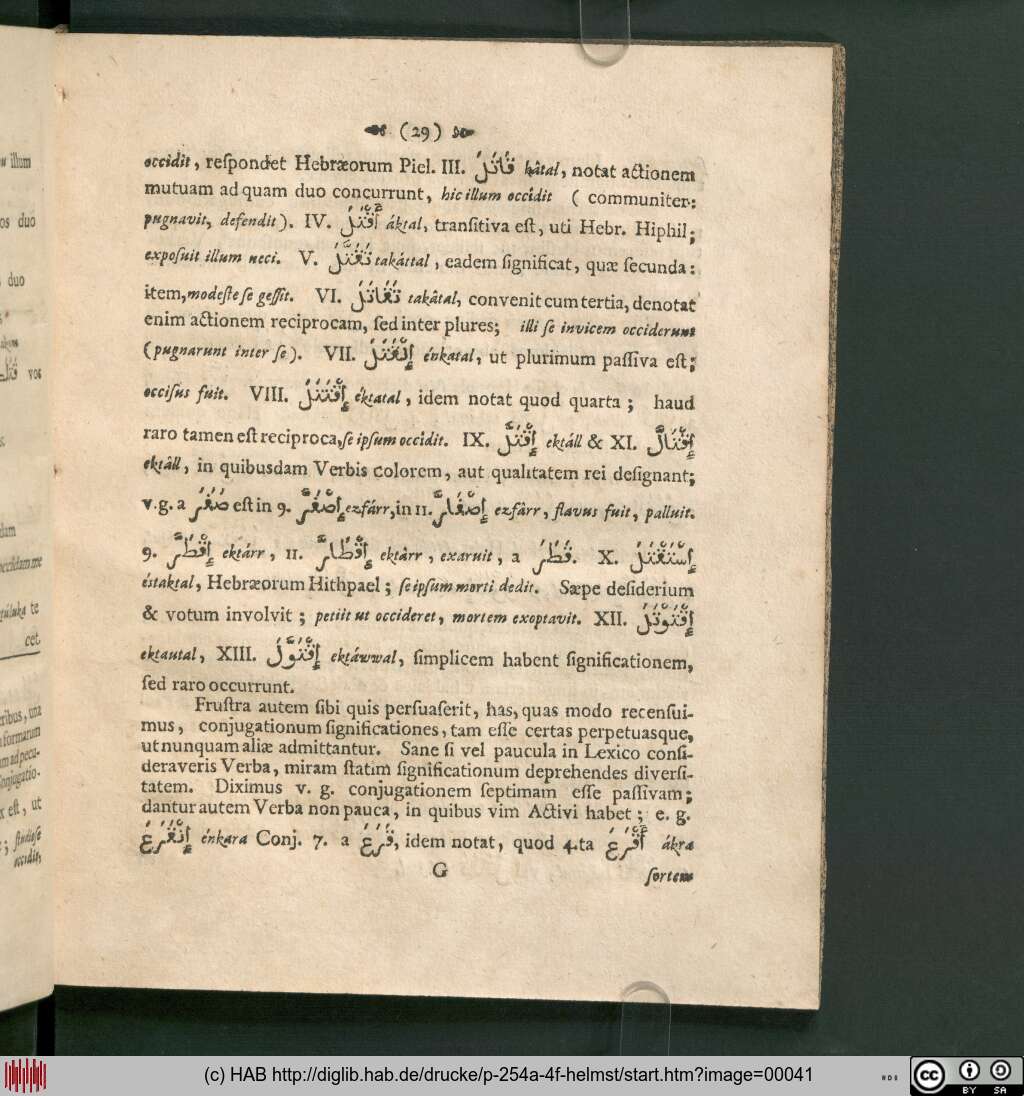 (29)
occidit, reſpondet Hebræorum Piel. III. قَاتَلَ ḳâtal, notat actionem
mutuam ad quam duo concurrunt, hic illum occîdit ( communiter:
pugnavit, defendit). IV. أَقْتَلَ áḳtal, tranſitiva eſt, uti Hebr. Hiphil;
expoſuit illum neci. V. تَقَتَّلَ taḳáttal, eadem ſignificat, quæ ſecunda:
item, modeſte ſe geſſit. VI. تَقَاتَلَ taḳâtal, convenit cum tertia, denotat
enim actionem reciprocam, ſed inter plures; illi ſe invicem occiderunt
(pugnarunt inter ſe). VII. إِنْقَتَلَ énḳatal, ut plurimum paſſiva eſt;
occiſus fuit. VIII. إِقْتَتَلَ éḳtatal, idem notat quod quarta; haud
raro tamen eſt reciproca, ſe ipſum occîdit. IX. إِقْتَلَّ eḳtáll & XI. إِقْتَالَّ
eḳtâll, in quibusdam Verbis colorem, aut qualitatem rei deſignant;
v.g. a صَفَرَ eſt in 9. إِصْفَرَّ ezfárr, in 11. إِصْفَارَّ ezfârr, flavus fuit, palluit.
9. إِقْطَرَّ eḳtárr, 11. إِقْطَارَّ eḳtârr, exaruit, a قَطَرَ. X. إِسْتَقْتَلَ
éstaḳtal, Hebræorum Hithpael; ſe ipſum morti dedit. Sæpe deſiderium
& votum involvit; petiit ut occideret, mortem exoptavit. XII. إِقْتَوْتَلَ
eḳtautal, XIII. إِقْتَوَّلَ eḳtáwwal, ſimplicem habent ſignificationem,
ſed raro occurrunt.
Fruſtra autem ſibi quis perſuaſerit, has, quas modo recenſui-
mus, conjugationum ſignificationes, tam eſſe certas perpetuasque,
ut nunquam aliæ admittantur. Sane ſi vel paucula in Lexico conſi-
deraveris Verba, miram ſtatim ſignificationum deprehendes diverſi-
tatem. Diximus v. g. conjugationem ſeptimam eſſe paſſivam;
dantur autem Verba non pauca, in quibus vim Activi habet; e. g.
إِنْقَرَعَ énḳara Conj. 7. a قَرَعَ, idem notat, quod 4.ta أَقْرَعَ áḳra
G
ſortem
(c) HAB http://diglib.hab.de/drucke/p-254a-4f-helmst/start.htm?image=00041
cc BY SA